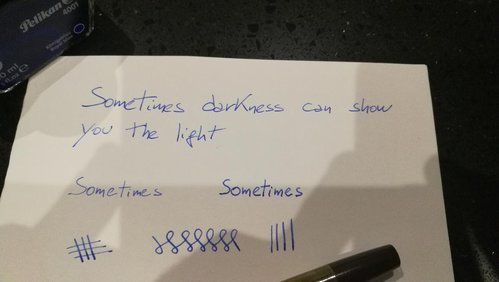 Pelikan
4001
Sometimes darkness can show
you the light
Sometimes Sometimes